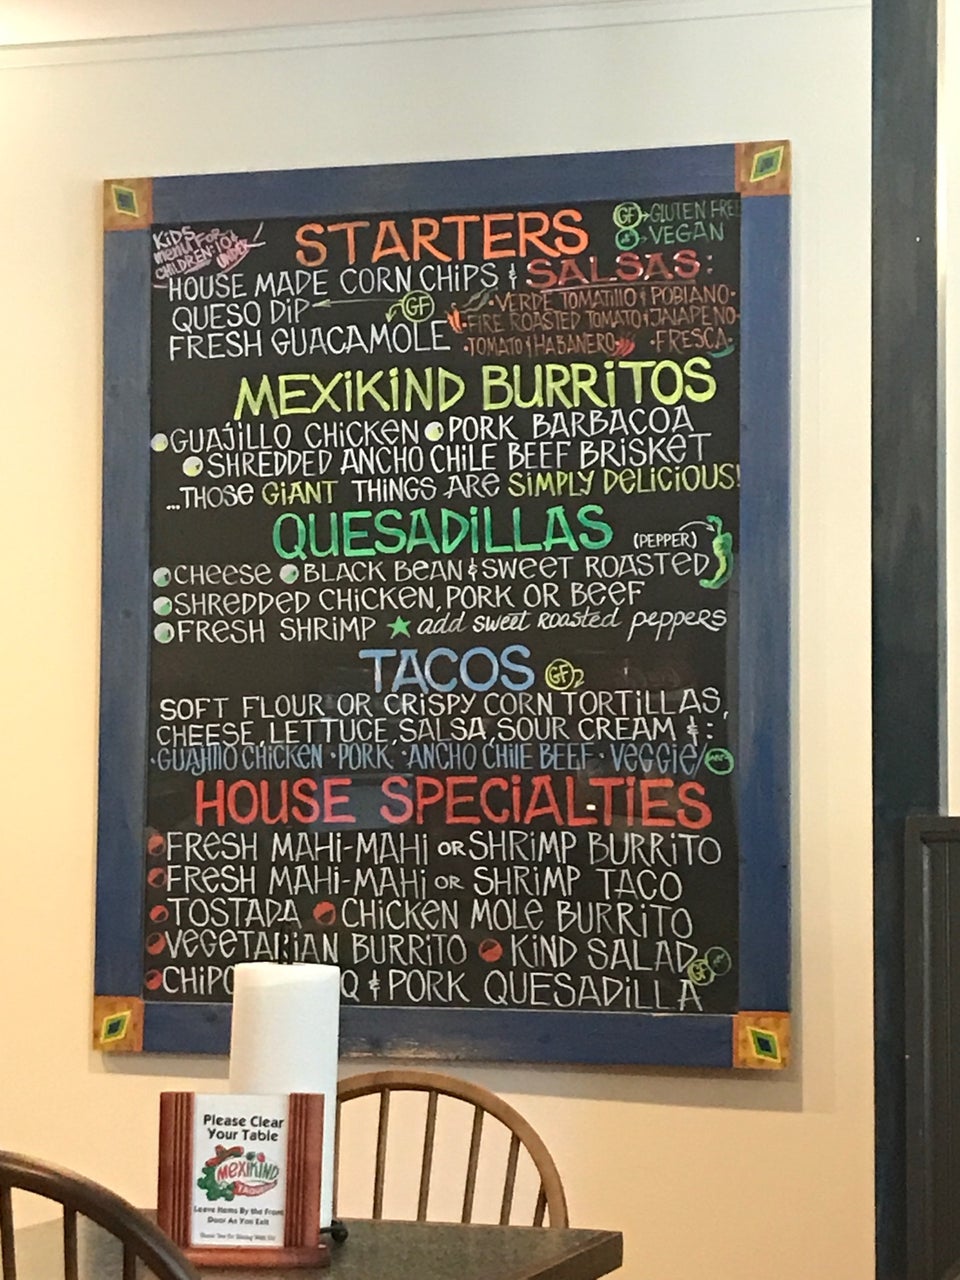 KiDS
menu FOR
CHILDREN: 10 &
UNDER
STARTERS
GF GLUTEN FREE
VEGAN
HOUSE MADE CORN CHiPS & SALSAS:
QUESO DiP
GF
FRESH GUACAMOLE
• VERDE TOMATILLO & POBLANO •
• FIRE ROASTED TOMATO & JALAPENO
• TOMATO & HABANERO • FRESCA
MEXiKiND BURRiTOS
GUAJILLO CHICKEN PORK BARBACOA
SHREDDED ANCHO CHiLE BEEF BRISKET
...THOSE GiANT THINGS ARE SiMPLY DELiCiOUS!
QUESADiLLAS
(PEPPER)
CHEESE BLACK BEAN & SWEET ROASTED
SHREDDED CHICKEN, PORK OR BEEF
FRESH SHRIMP ★ add sweet roasted peppers
TACOS GF
SOFT FLOUR OR CRiSPY CORN TORTiLLAS,
CHEESE, LETTUCE, SALSA, SOUR CREAM & :
• GUAJILLO CHICKEN • PORK • ANCHO CHILE BEEF • VEGGiE/
HOUSE SPECiALTiES
FRESH MAHi-MAHi OR SHRiMP BURRiTO
FRESH MAHi-MAHi OR SHRiMP TACO
TOSTADA CHICKEN MOLE BURRiTO
VEGETARIAN BURRiTO KiND SALAD
GF
Q & PORK QUESADiLLA
Please Clear
Your Table
MexiKIND
Leave Items By the Front
Door As You Exit